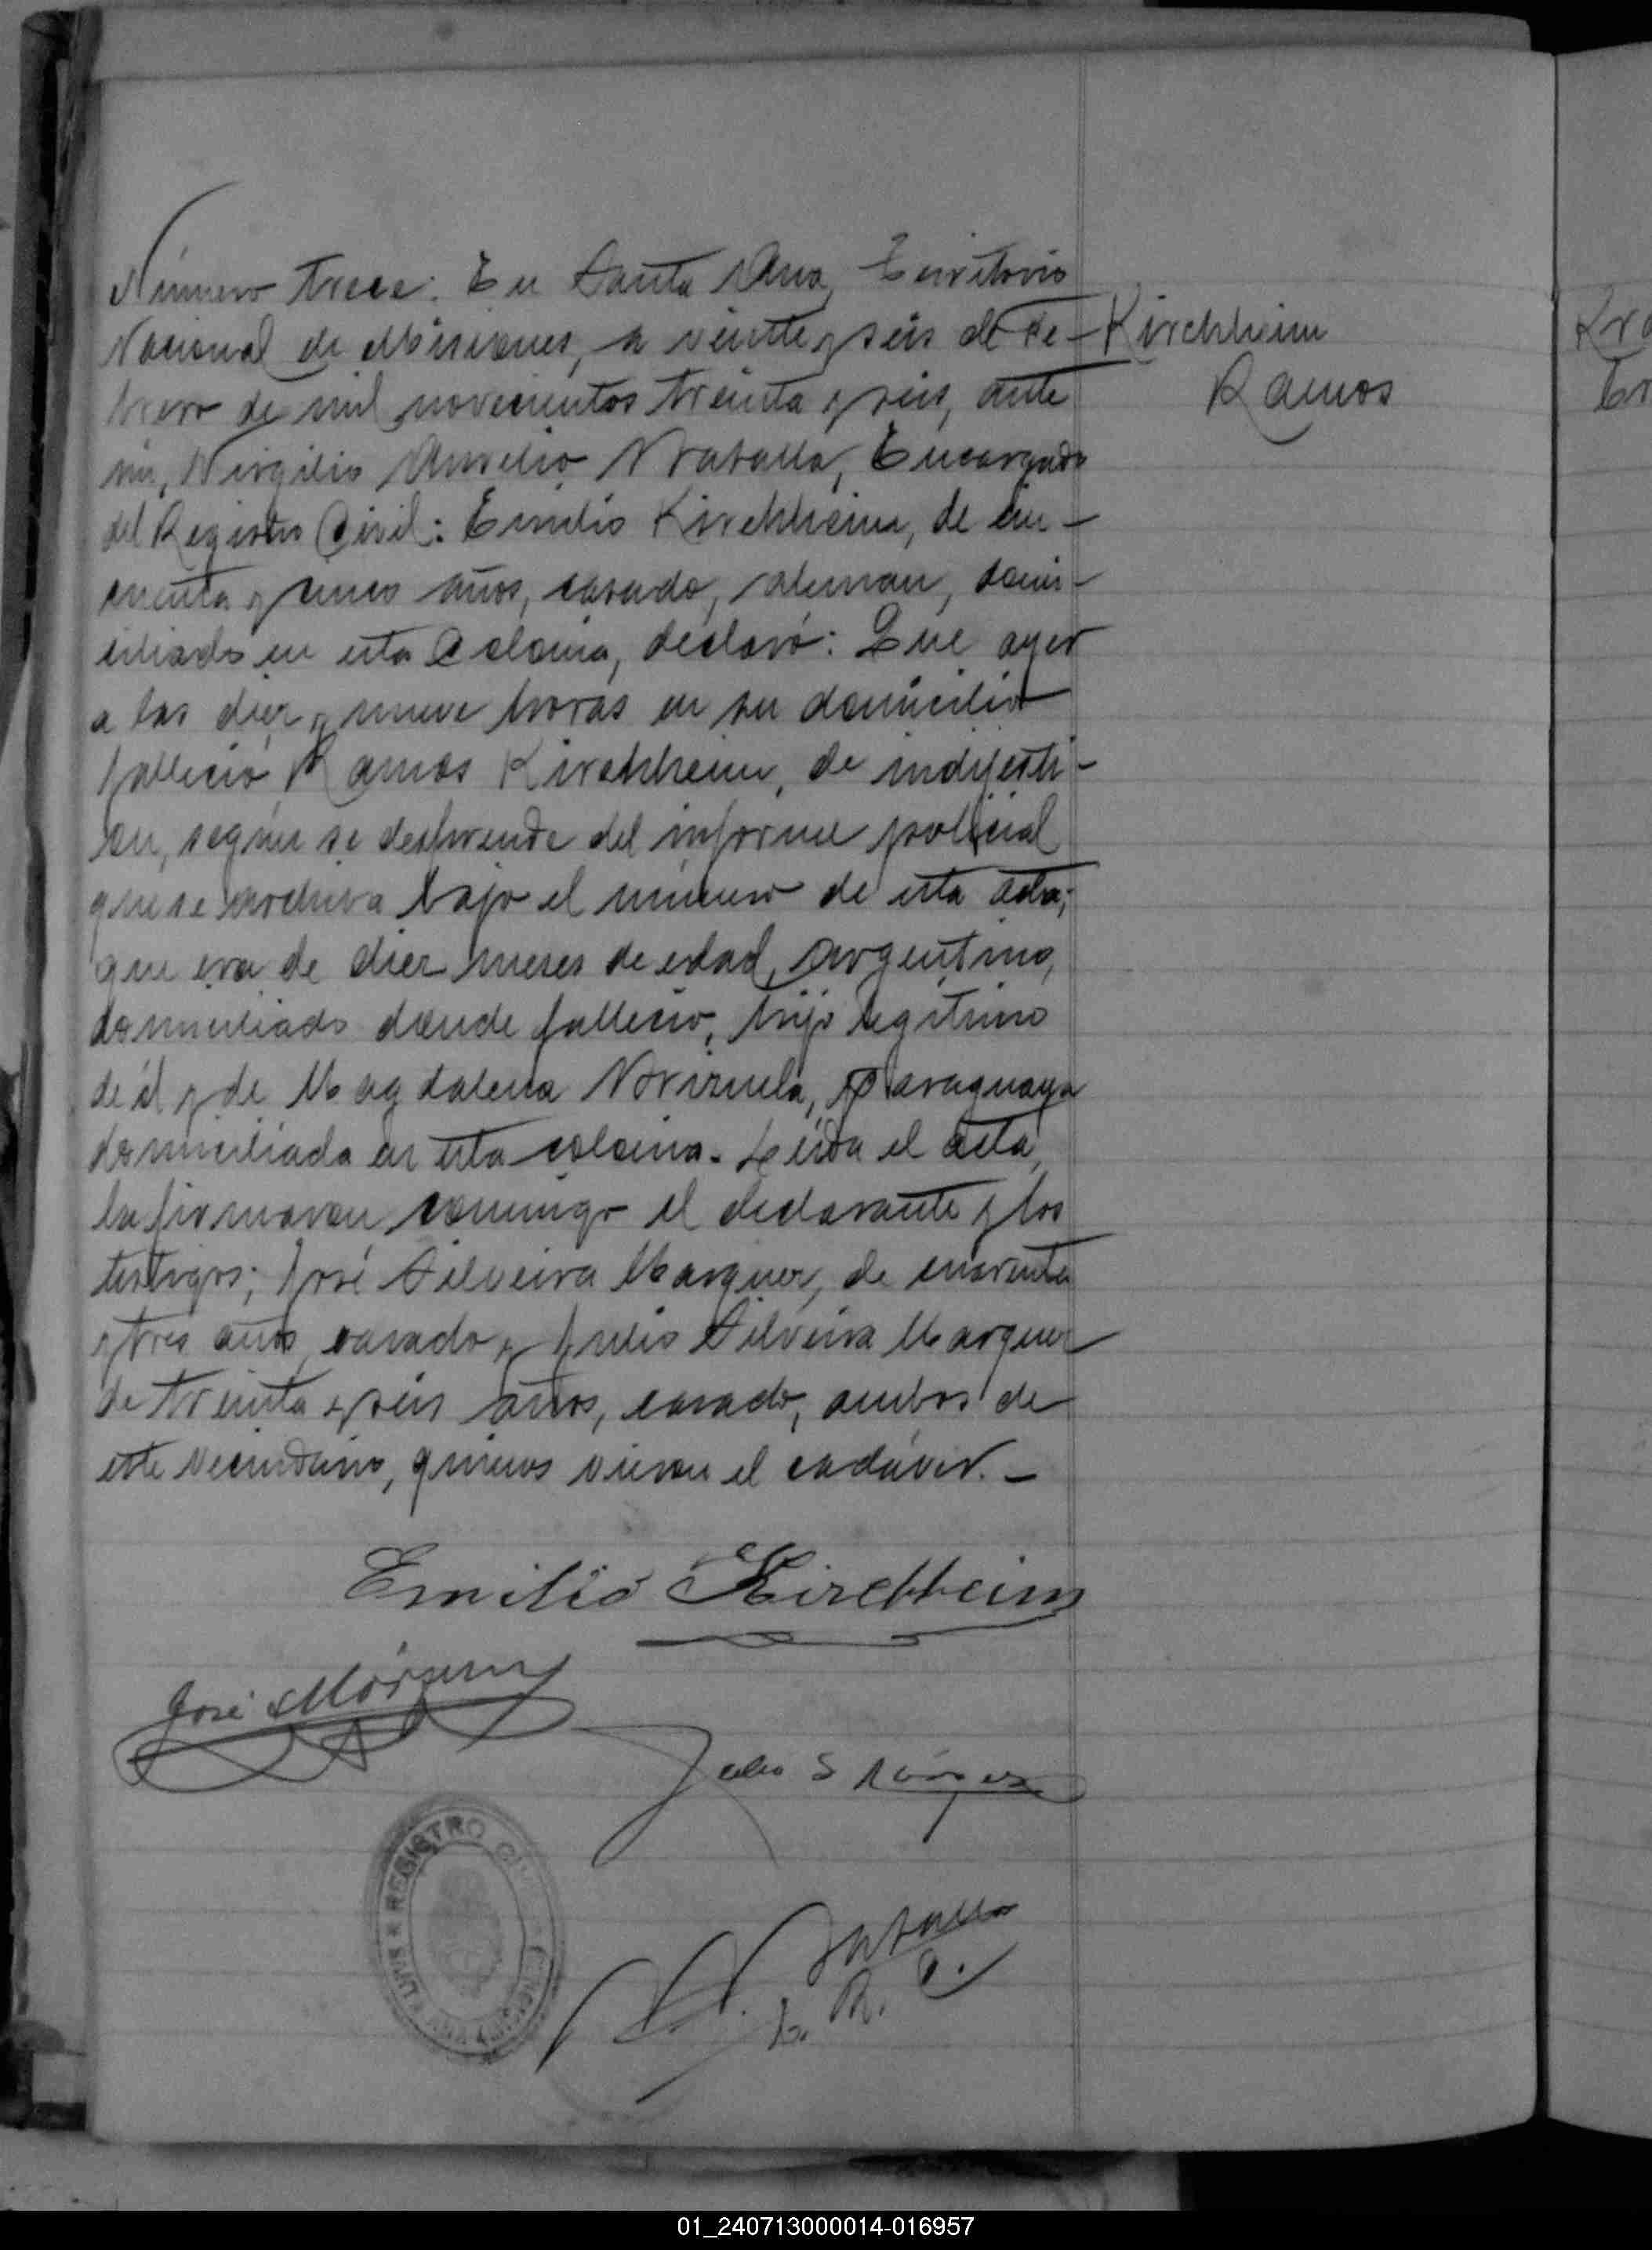 Número trece: En Santa Ana, Territorio
Nacional de Misiones, a veinte y seis de Fe-
brero de mil novecientos treinta y seis, ante
mi, Virgilio Aurelio Matalla, Encargado
del Registro Civil: Emilio Kirchheim, de cin-
cuenta y cinco años, casado, aleman, domi-
ciliado en esta Colonia, declaró: Que ayer
a las diez y nueve horas en su domicilio
falleció Ramos Kirchheim, de indijesti-
on, según se desprende del informe policial
que se archiva bajo el número de esta acta;
que era de diez meses de edad, argentino,
domiciliado donde falleció, hijo legítimo
de él y de Magdalena Norizuela, paraguaya
domiciliada en esta colonia. Leída el acta,
la firmaron conmigo el declarante y los
testigos; José Silveira Marquez, de cuarenta
y tres años, casado y Julio Silveira Marquez
de treinta y seis años, casado, ambos de
este vecindario, quienes vieron el cadáver.-
Kirchheim
Ramos
Kra
Er
Emilio Kirchheim
José Márquez
Julio S Márquez
E. R. C.
REGISTRO CIVIL
01_240713000014-016957